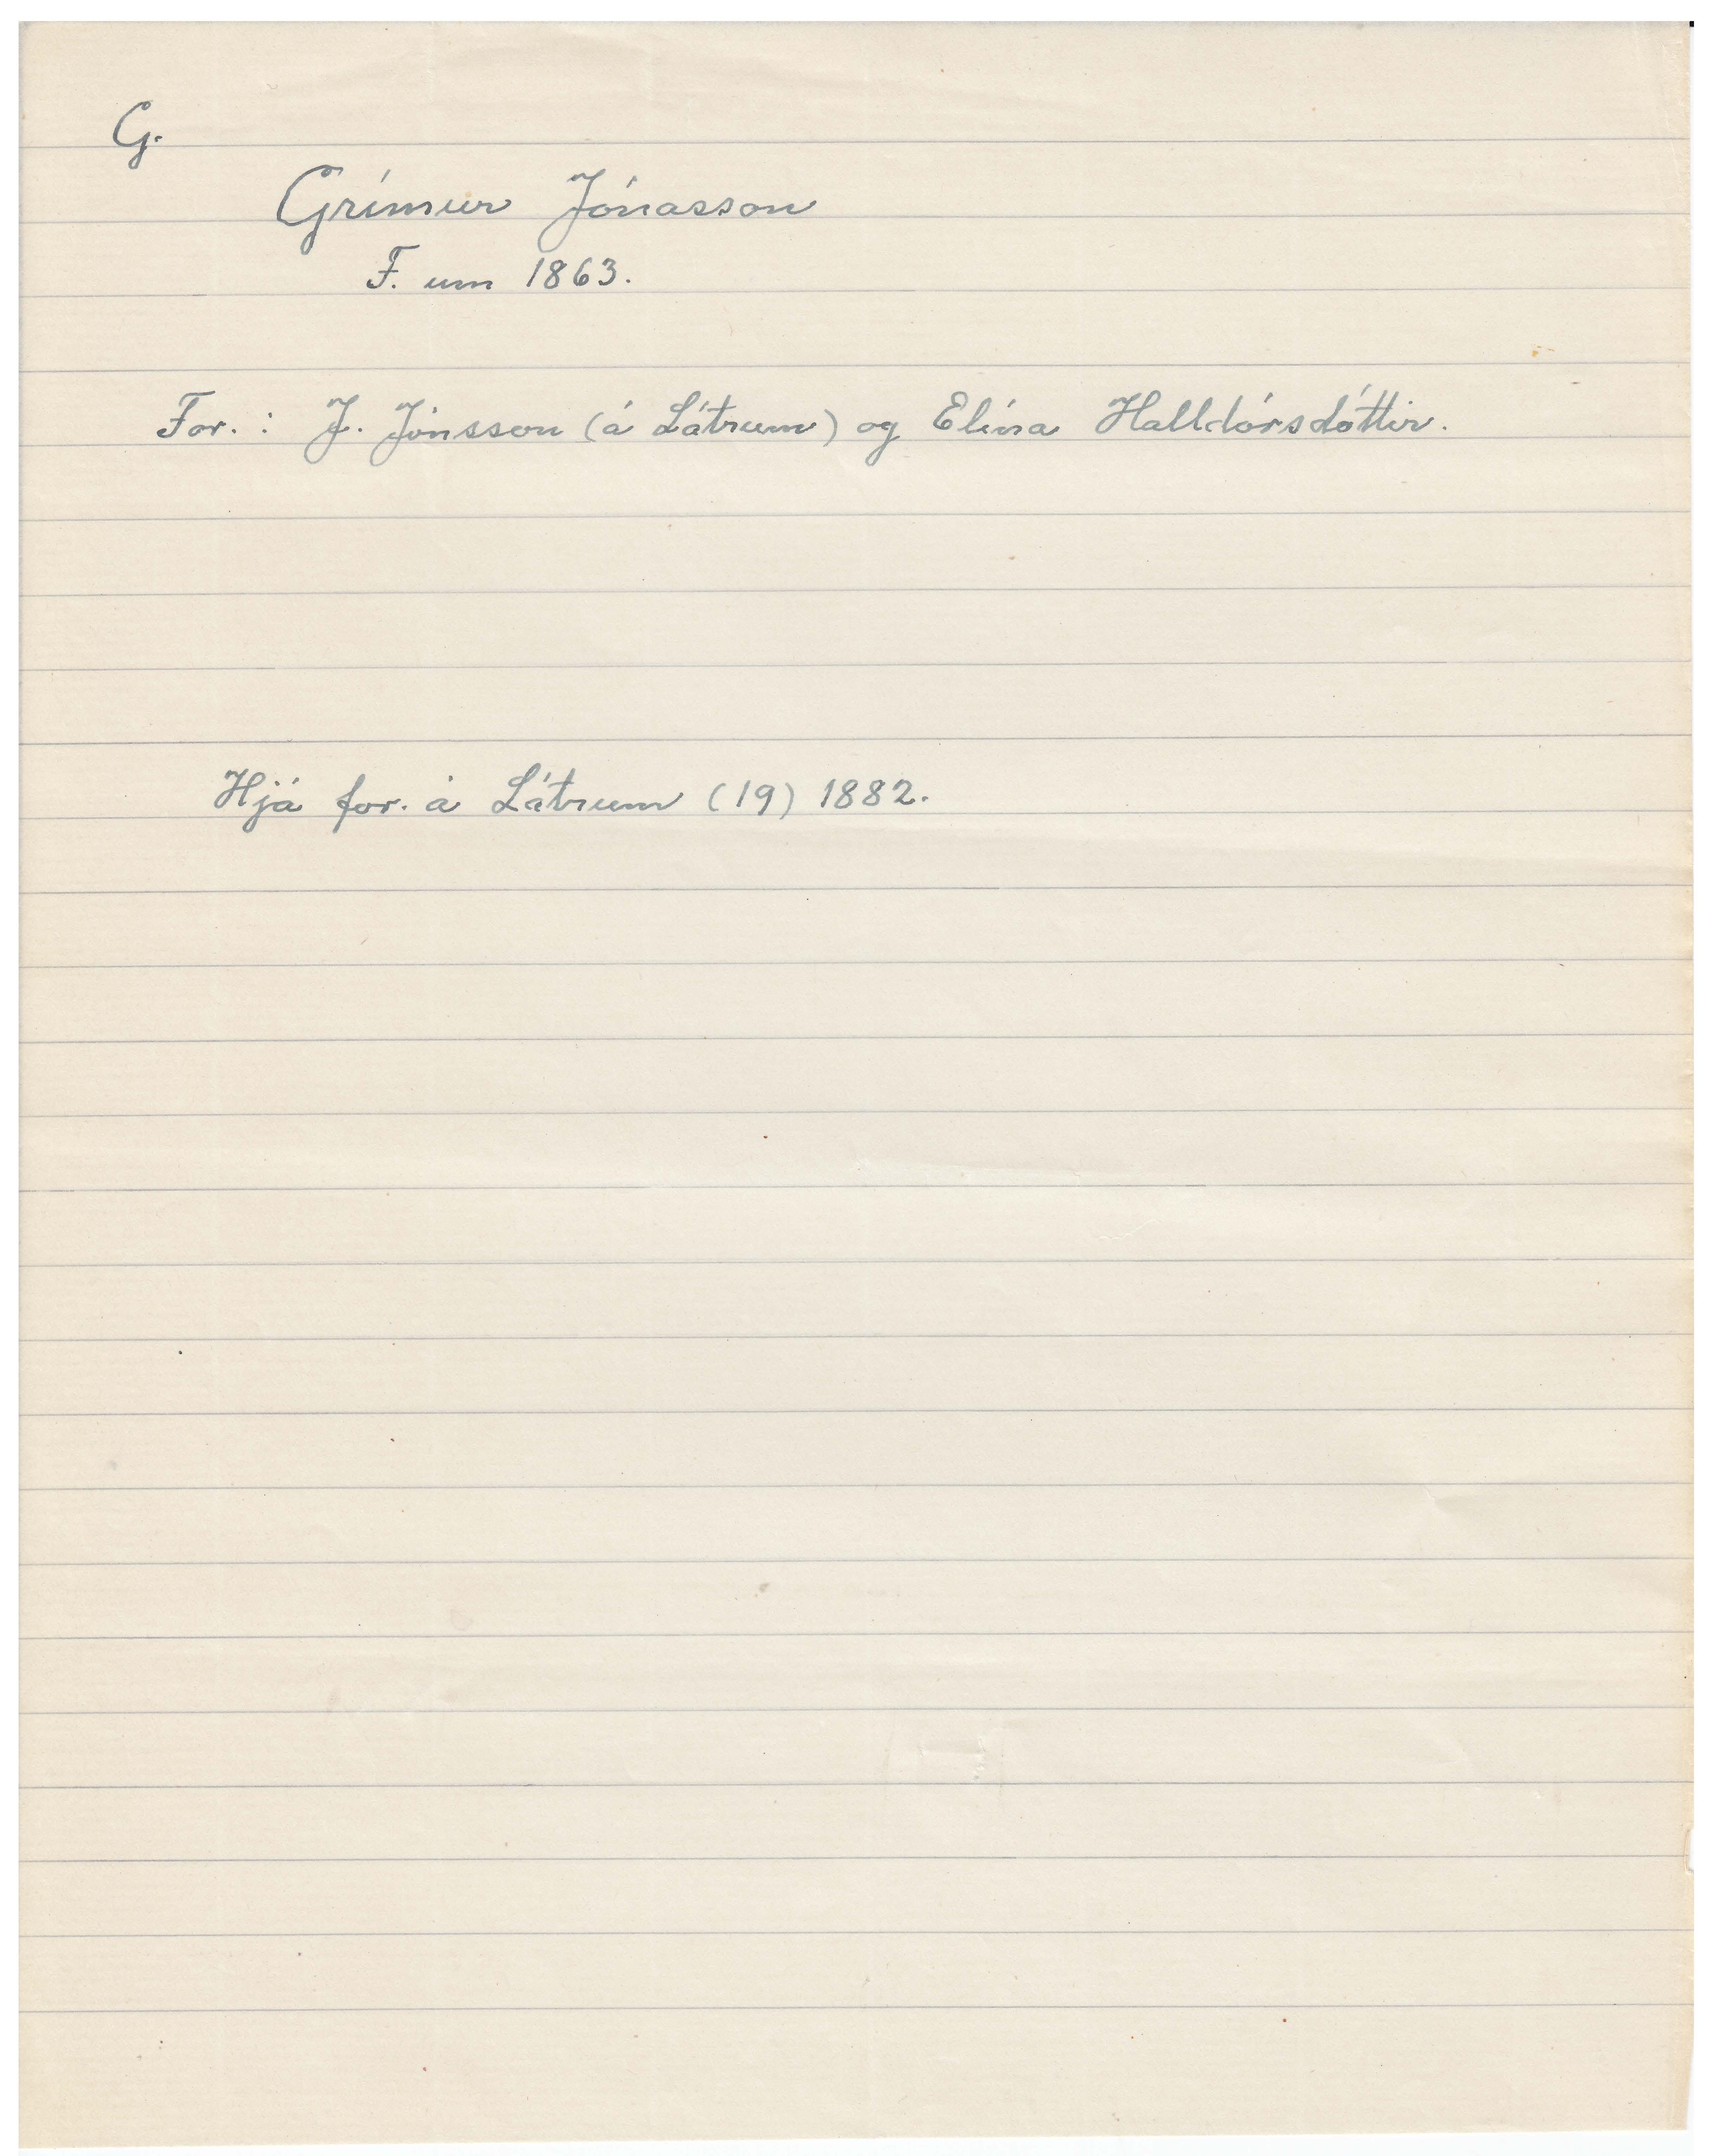 G.
Grímur Jónasson
F. um 1863.
For. : J. Jónsson (á Látrum) og Elína Halldórsdóttir.
Hjá for. á Látrum (19) 1882.